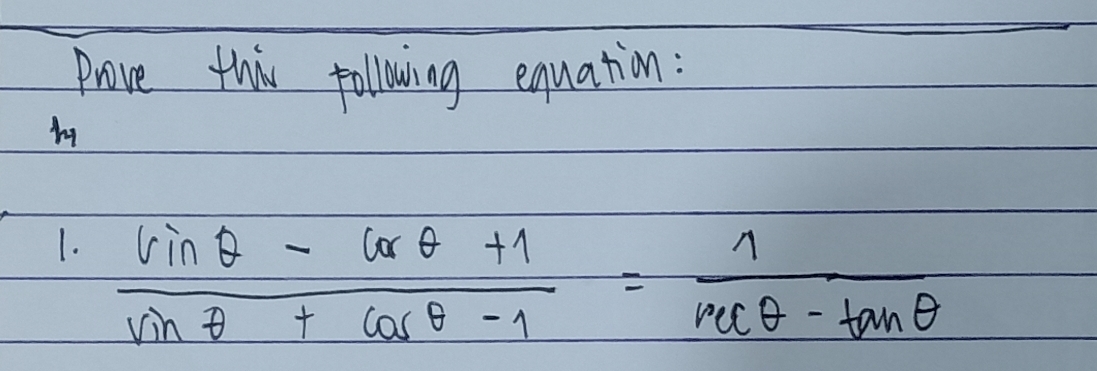 Prove this following equation:
1. sin θ - cos θ +1 / sin θ + cos θ -1 = 1 / sec θ - tan θ